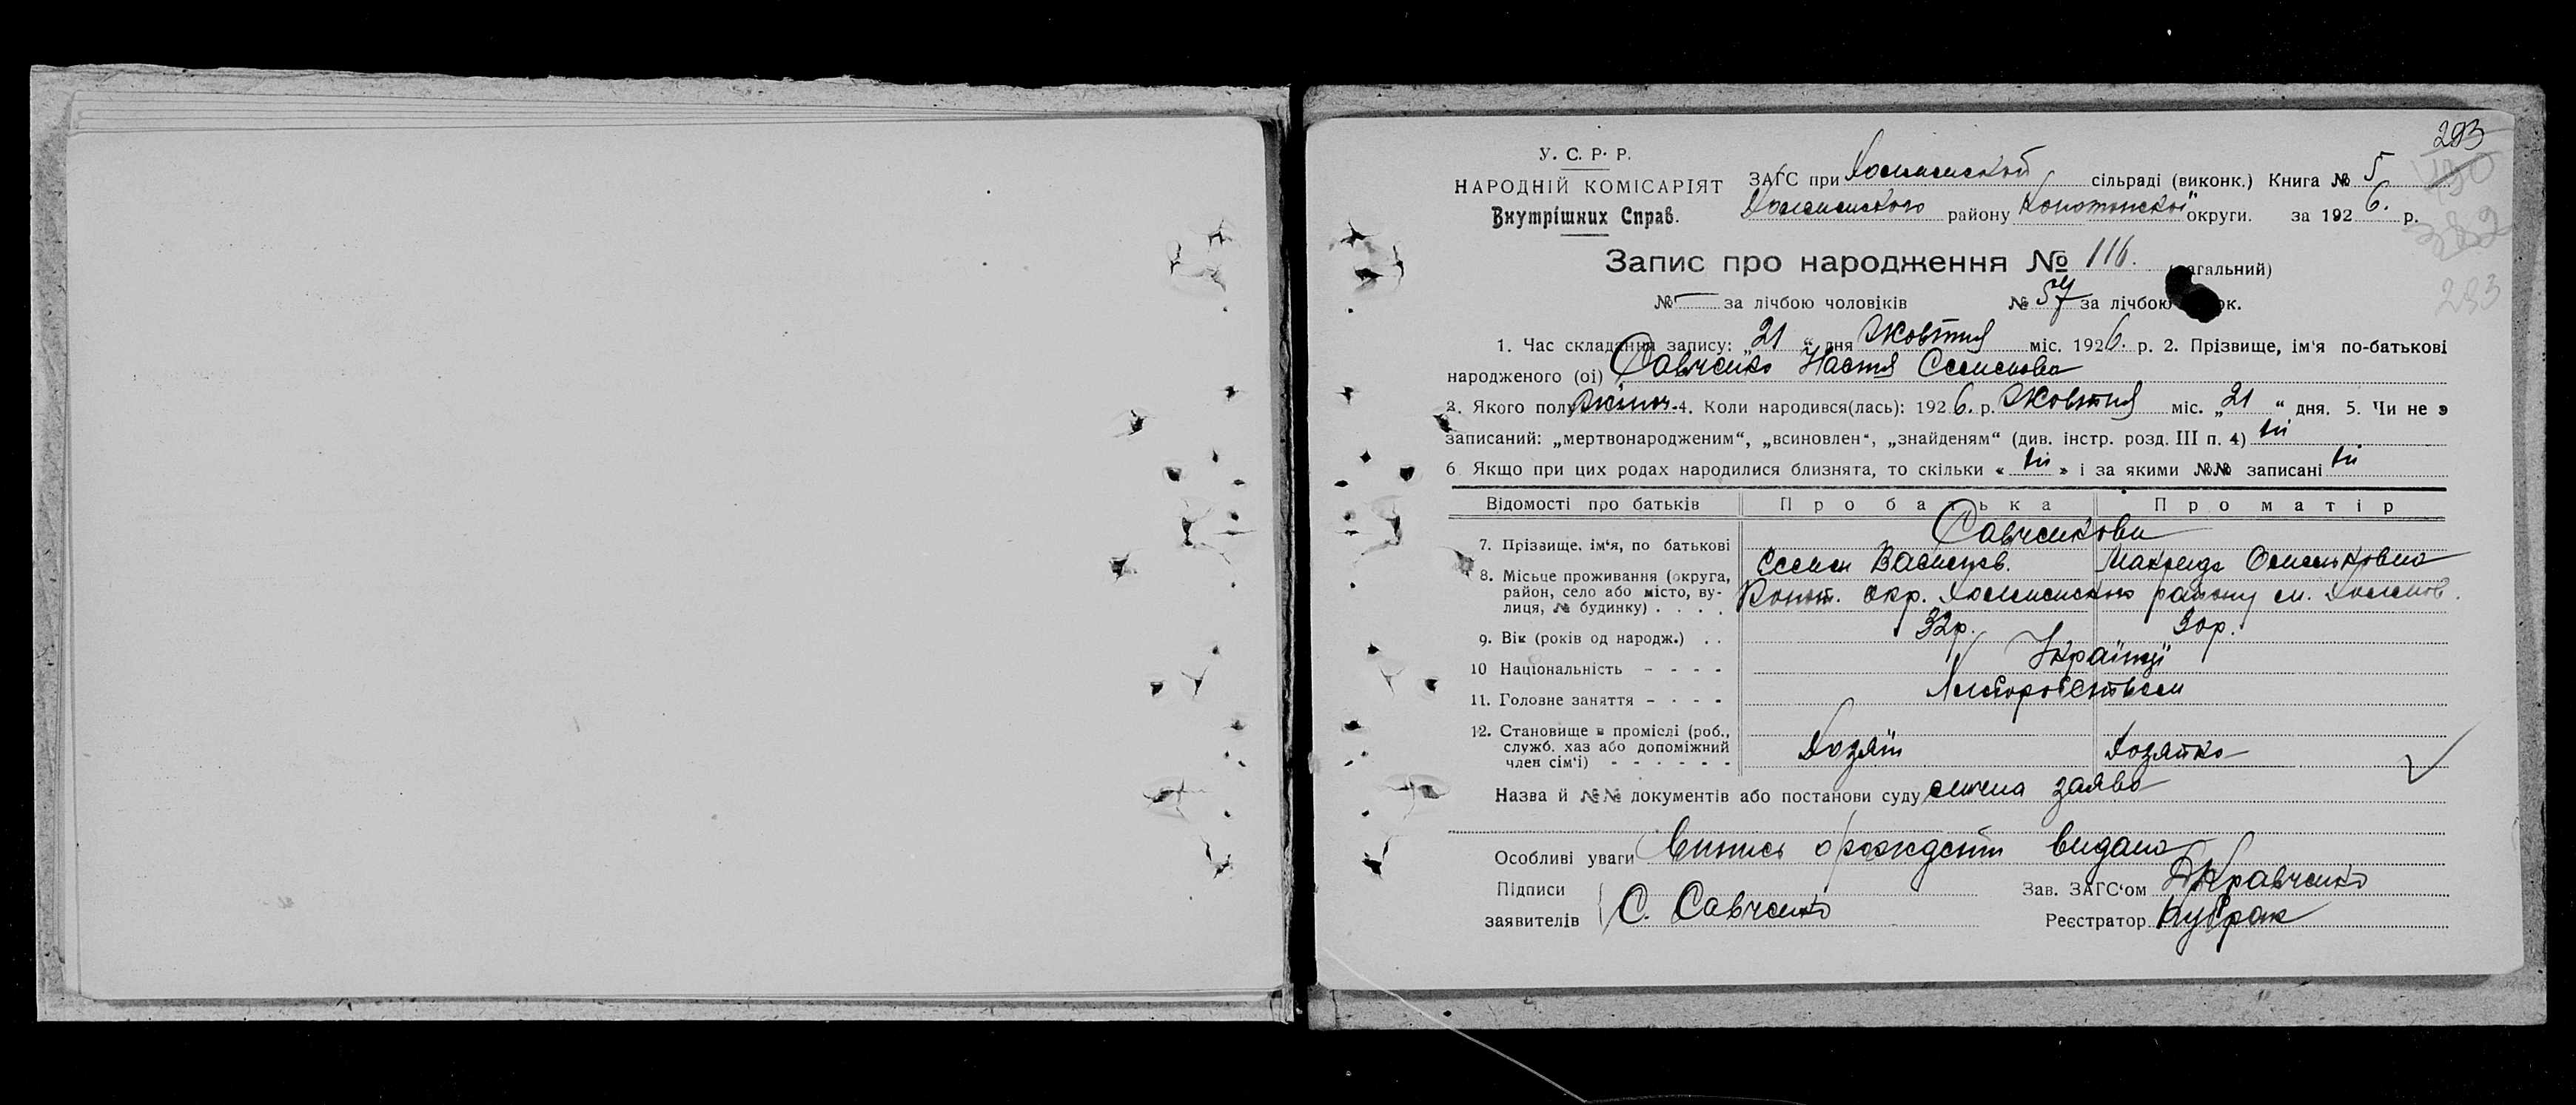 293
У. С. Р. Р.
НАРОДНІЙ КОМІСАРІЯТ
Внутрішних Справ.
ЗАГС при сільраді (виконк.) Книга № 5
району Конотопської округи. за 1926. р.
Запис про народження № 116. (загальний)
№ — за лічбою чоловіків № 57 за лічбою ок.
1. Час складання запису: „21“ дня Жовтня міс. 1926. р. 2. Прізвище, ім'я по-батькові
народженого (ої) Савченко Настя Семенова
3. Якого полу жіноч. 4. Коли народився(лась): 1926. р. Жовтня міс. „21“ дня. 5. Чи не є
записаний: „мертвонародженим“, „всиновлен“, „знайденям“ (див. інстр. розд. III п. 4) ні
6 Якщо при цих родах народилися близнята, то скільки « ні » і за якими №№ записані ні
Відомості про батьків Про батька Про матір
7. Прізвище, ім'я, по батькові Савченкови
Семен Василів. Макрида Омельковна
8. Місьце проживання (округа, район, село або місто, вулиця, № будинку) . . . . Конот. окр. району м.
9. Вік (років од народж.) . . 32р. 30р.
10 Національність - - - - Українці
11. Головне заняття - - - - Хліборобством
12. Становище в промислі (роб., служб. хаз або допоміжний член сім'ї) - - - - - - Хозяїн Хозяйка
Назва й №№ документів або постанови суду заява
Особливі уваги Випись о рождении видана
Підписи
заявителів С. Савченко
Зав. ЗАГС'ом Кравченко
Реєстратор Кубрак